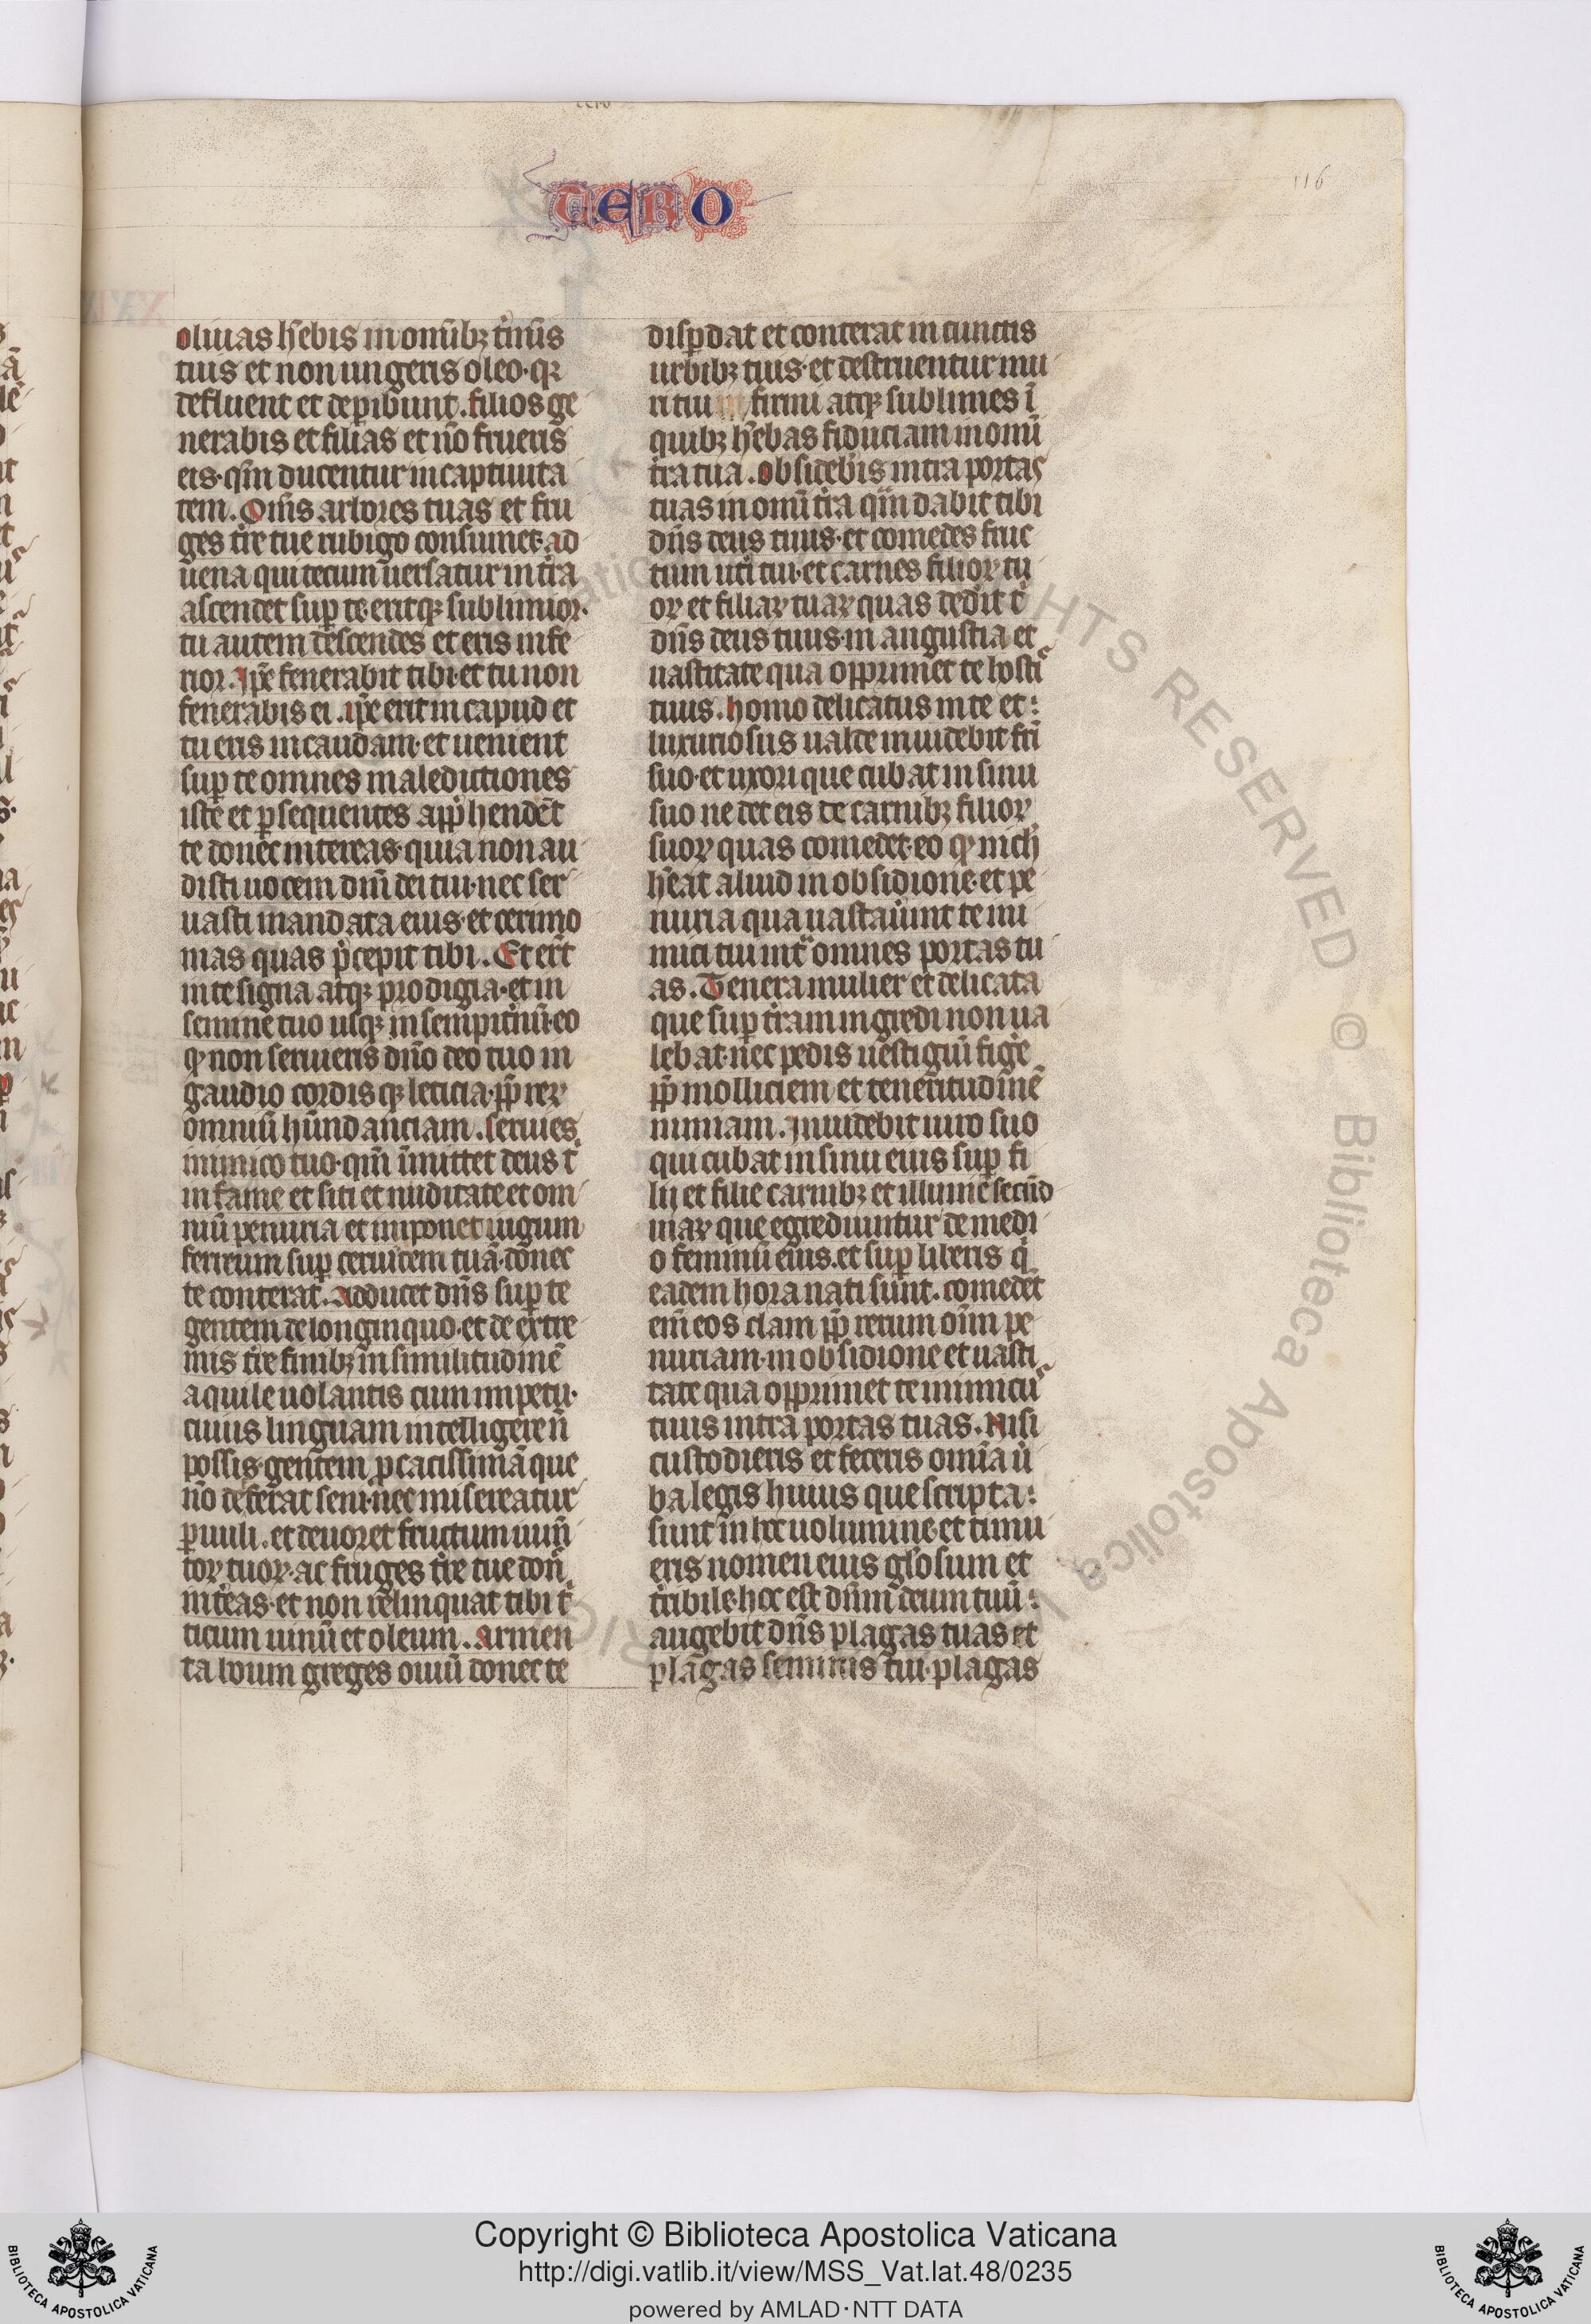 TERO
116
oliuas hebis in omībꝫ t̄minis
tuis et non ungeris oleo· qꝛ
defluent et deꝑibunt. filios ge
nerabis et filias et nō frueris
eis· qm̄ ducentur in captiuita
tem. Omīs arbores tuas et fru
ges tr̄e tue rubigo consumet· ad
uena qui tecum uersatur in tr̄a
ascendet suꝑ te· eritqꝫ sublimior·
tu autem descendes et eris infe
rior. Ip̄e fenerabit tibi· et tu non
fenerabis ei. ip̄e erit in capud et
tu eris in caudam· et uenient
suꝑ te omnes maledictiones
iste et ꝑsequentes app̄hendēt
te donec intereas· quia non au
disti uocem dn̄i dei tui· nec ser
uasti mandata eius· et cerimo
nias quas p̄cepit tibi. Et er̄t
in te signa atqꝫ prodigia· et in
semine tuo usqꝫ in sempit̄nū· eo
ꝙ non serujeris dn̄o deo tuo in
gaudio cordisqꝫ leticia· pp̄ reꝝ
omniū hūndanciam. seruies
inimico tuo· qm̄ īmittet deus t̄
in fame et siti et nuditate et om
niū penuria et imponet iugum
ferreum suꝑ ceruicem tuā· donec
te conterat. Adducet dn̄s suꝑ te
gentem de longinquo· et de extre
mis tr̄e finibꝫ in similitudinē
aquile uolantis cum impetu·
cuius linguam intelligere n̄
possis· gentem ꝓcacissimā que
nō deferat seni· nec misereatur
ꝑuuli. et deuoret fructum iumē
toꝝ tuoꝝ· ac fruges tr̄e tue don̄
int̄eas· et non relinquat tibi t̄
ticum uinū et oleum. Armen
ta boum greges ouiū donec te
disꝑdat et conterat in cunctis
urbibꝫ tuis· et destruentur mu
ri tui firmi atqꝫ sublimes ī
quibꝫ hebas fiduciam in omī
tr̄a tua. Obsideb̄is intra portas
tuas in omī tr̄a qm̄ dabit tibi
dn̄s deus tuus· et comedes fruc
tum ut̄i tui· et carnes filioꝝ tu
oꝝ et filiaꝝ tuaꝝ quas dedit t̄
dn̄s deus tuus· in angustia et
uastitate qua opprimet te hosti
tuus. homo delicatus in te et
luxuriosus ualde inuidebit fr̄i
suo· et uxori que cubat in sinu
suo ne det eis de carnibꝫ filioꝝ
suoꝝ quas comedet· eo ꝙ nich̄
heat aliud in obsidione· et pe
nuria qua uastau̅int te ini
mici tui int̄ omnes portas tu
as. Tenera mulier et delicata
que suꝑ tr̄am ingredi non ua
lebat· nec pedis uestigiū fige
pp̄ molliciem et teneritudinē
nimiam. Inuidebit uiro suo
qui cubat in sinu eius suꝑ fi
lij et filie carnibꝫ et illuuie secūd
inaꝝ que egrediuntur de medi
o feminū eius. et suꝑ liberis q̄
eadem hora nati sunt. comedet
eni eos clam pp̄ rerum oīm pe
nuriam· in obsidione et uasti
tate qua opprimet te inimicu
tuus intra portas tuas. Nisi
custodieris et feceris omīa ū
ba legis huius que scripta
sunt in hoc uolumine· et timu
eris nomen eius glōsum et
tr̄ibile· hoc est dn̄m deum tuū
augebit dn̄s plagas tuas et
plagas seminis tui· plagas
RIGHTS RESERVED © Biblioteca Apostolica
Copyright © Biblioteca Apostolica Vaticana
http://digi.vatlib.it/view/MSS_Vat.lat.48/0235
powered by AMLAD·NTT DATA
BIBLIOTECA APOSTOLICA VATICANA
BIBLIOTECA APOSTOLICA VATICANA